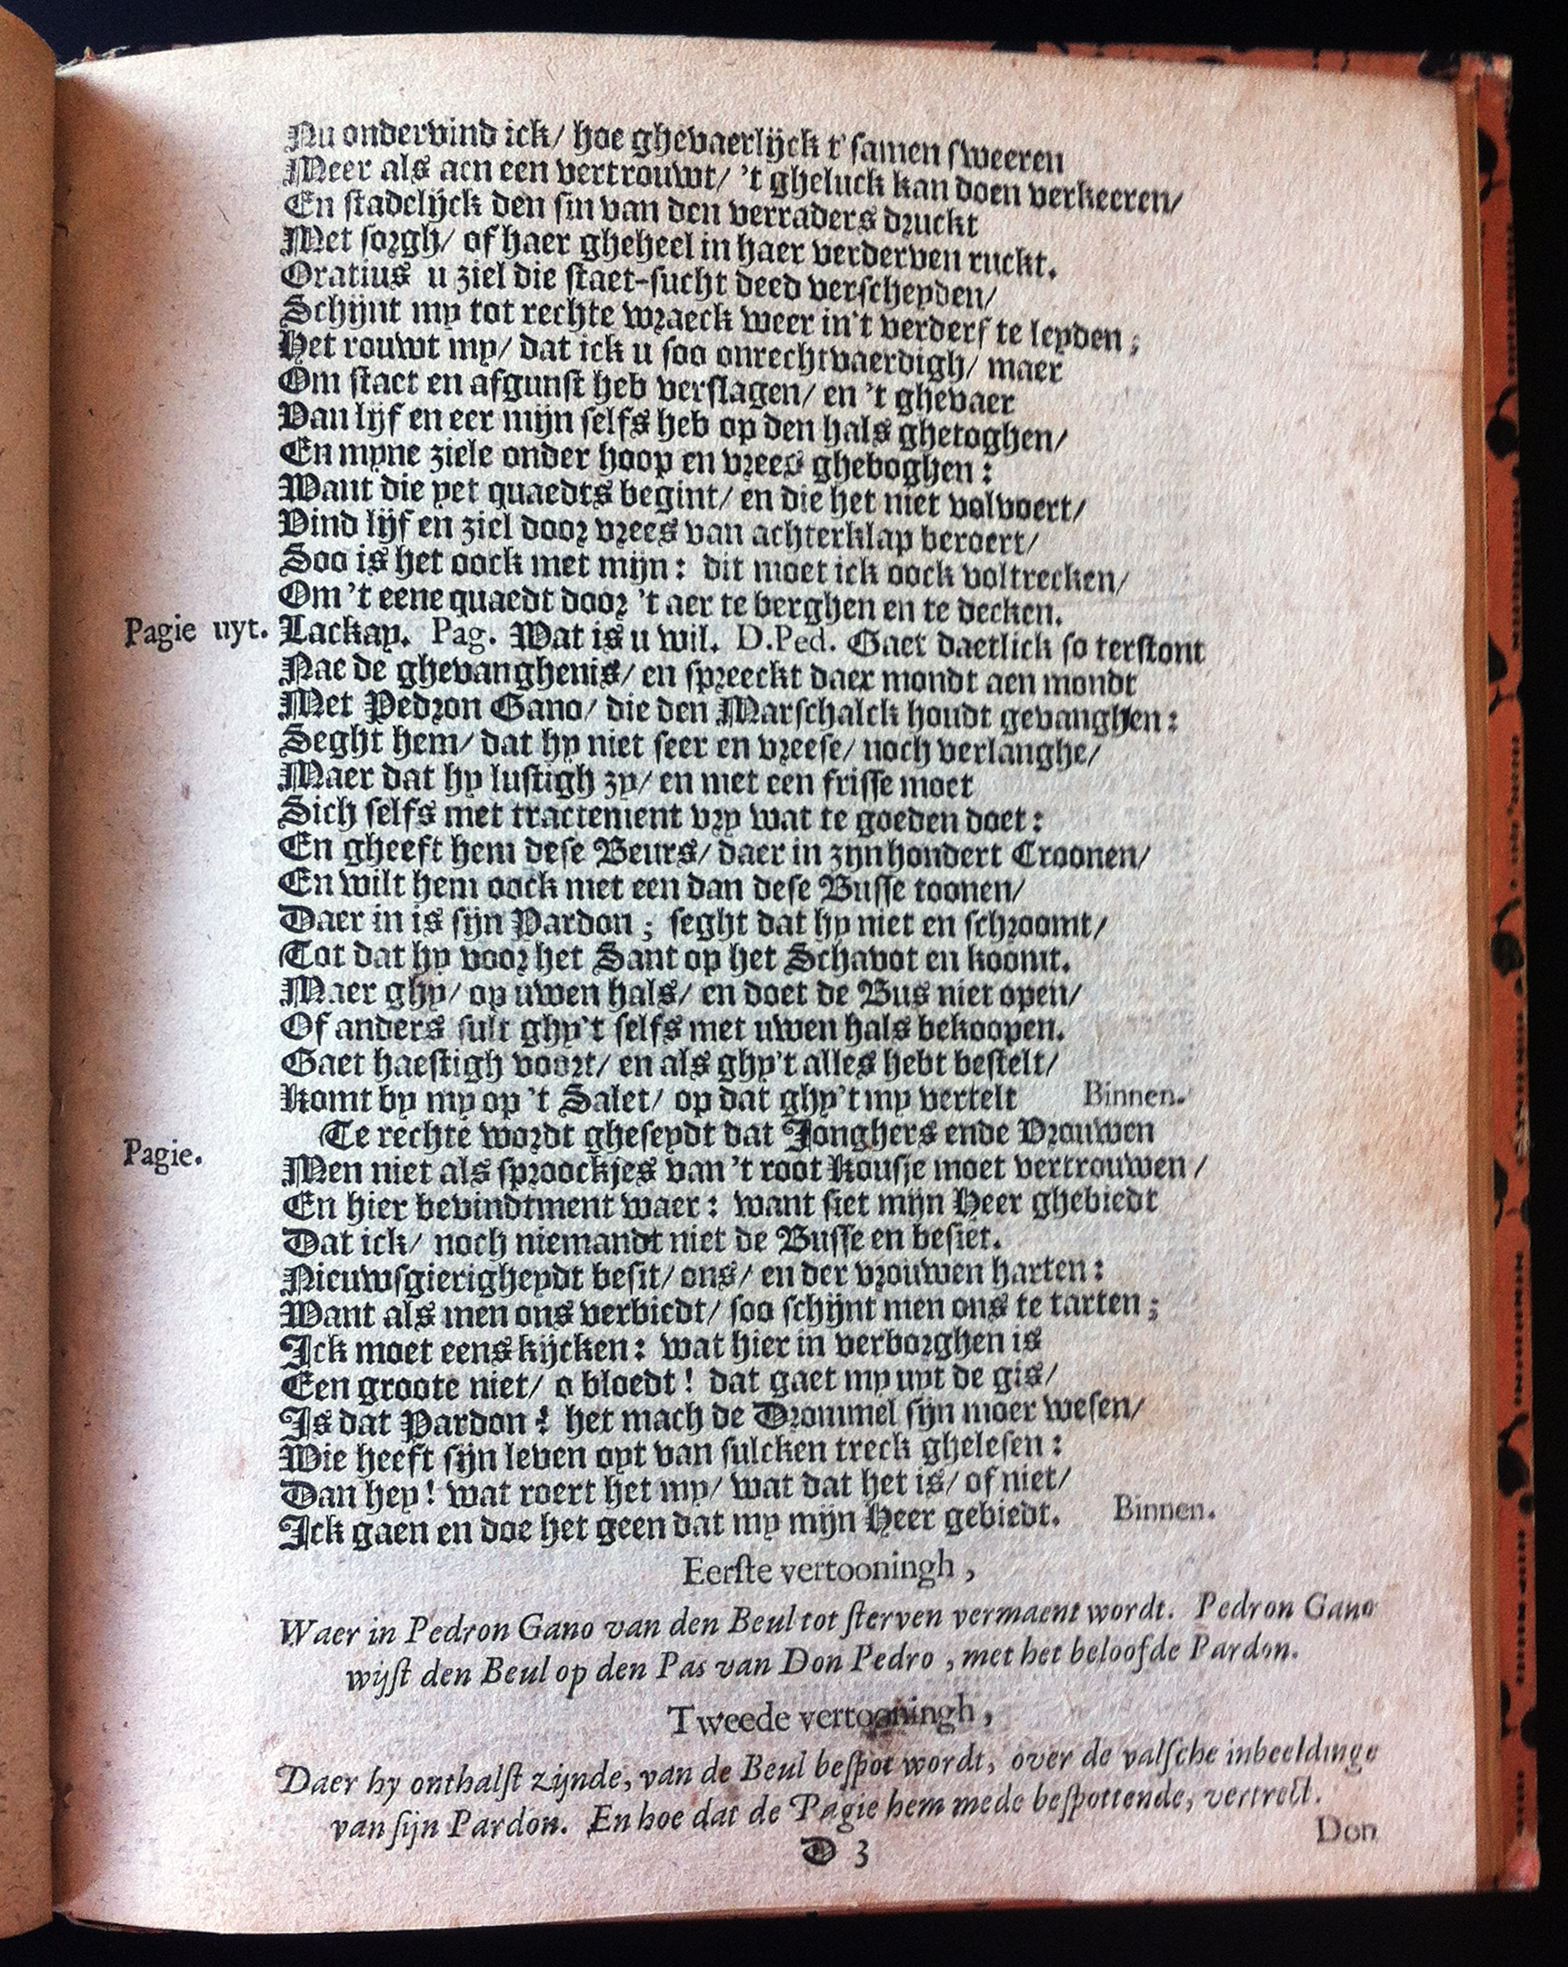 Nu ondervind ick/ hoe ghevaerlijck t'samen sweeren
Meer als aen een vertrouwt/ 't gheluck kan doen verkeeren/
En stadelijck den sin van den verraders druckt
Met sorgh/ of haer gheheel in haer verderven ruckt.
Oratius u ziel die staet-sucht deed verscheyden/
Schijnt my tot rechte wraeck weer in't verderf te leyden;
Het rouwt my/ dat ick u soo onrechtvaerdigh/ maer
Om staet en afgunst heb verslagen/ en 't ghevaer
Van lijf en eer mijn selfs heb op den hals ghetoghen/
En myne ziele onder hoop en vrees gheboghen:
Want die yet quaedts begint/ en die het niet volvoert/
Vind lijf en ziel door vrees van achterklap beroert/
Soo is het oock met mijn: dit moet ick oock voltrecken/
Om 't eene quaedt door 't aer te berghen en te decken.
Pagie uyt. Lackay. Pag. Wat is u wil. D.Ped. Gaet daetlick so terstont
Nae de ghevanghenis/ en spreeckt daer mondt aen mondt
Met Pedron Gano/ die den Marschalck houdt gevanghen:
Seght hem/ dat hy niet seer en vreese/ noch verlanghe/
Maer dat hy lustigh zy/ en met een frisse moet
Sich selfs met tractement vry wat te goeden doet:
En gheeft hem dese Beurs/ daer in zyn hondert Croonen/
En wilt hem oock met een dan dese Busse toonen/
Daer in is sijn Pardon; seght dat hy niet en schroomt/
Tot dat hy voor het Sant op het Schavot en koomt.
Maer ghy/ op uwen hals/ en doet de Bus niet open/
Of anders sult ghy't selfs met uwen hals bekoopen.
Gaet haestigh voort/ en als ghy't alles hebt bestelt/
Komt by my op 't Salet/ op dat ghy't my vertelt Binnen.
Pagie. Te rechte wordt gheseydt dat Jonghers ende Vrouwen
Men niet als sproockjes van 't root Kousje moet vertrouwen/
En hier bevindtment waer: want siet mijn Heer ghebiedt
Dat ick/ noch niemandt niet de Busse en besiet.
Nieuwsgierigheydt besit/ ons/ en der vrouwen harten:
Want als men ons verbiedt/ soo schijnt men ons te tarten;
Ick moet eens kijcken: wat hier in verborghen is
Een groote niet/ o bloedt! dat gaet my uyt de gis/
Is dat Pardon? het mach de Drommel sijn moer wesen/
Wie heeft sijn leven oyt van sulcken treck ghelesen:
Dan hey! wat roert het my/ wat dat het is/ of niet/
Ick gaen en doe het geen dat my mijn Heer gebiedt. Binnen.
Eerste vertooningh,
Waer in Pedron Gano van den Beul tot sterven vermaent wordt. Pedron Gano
wijst den Beul op den Pas van Don Pedro, met het beloofde Pardon.
Tweede vertooningh,
Daer hy onthalst zijnde, van de Beul bespot wordt, over de valsche inbeeldinge
van sijn Pardon. En hoe dat de Pagie hem mede bespottende, vertrect.
D 3 Don